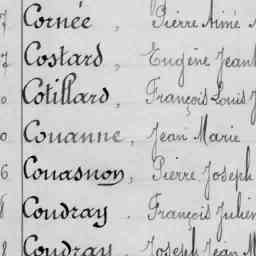 7 Cornée, Pierre Aimé
7 Costard, Eugène Jean
0 Cotillard, François Louis J
0 Couanne, Jean Marie
6 Couasnon, Pierre Joseph
8 Coudray, François Julien
Coudray, Joseph Jean M